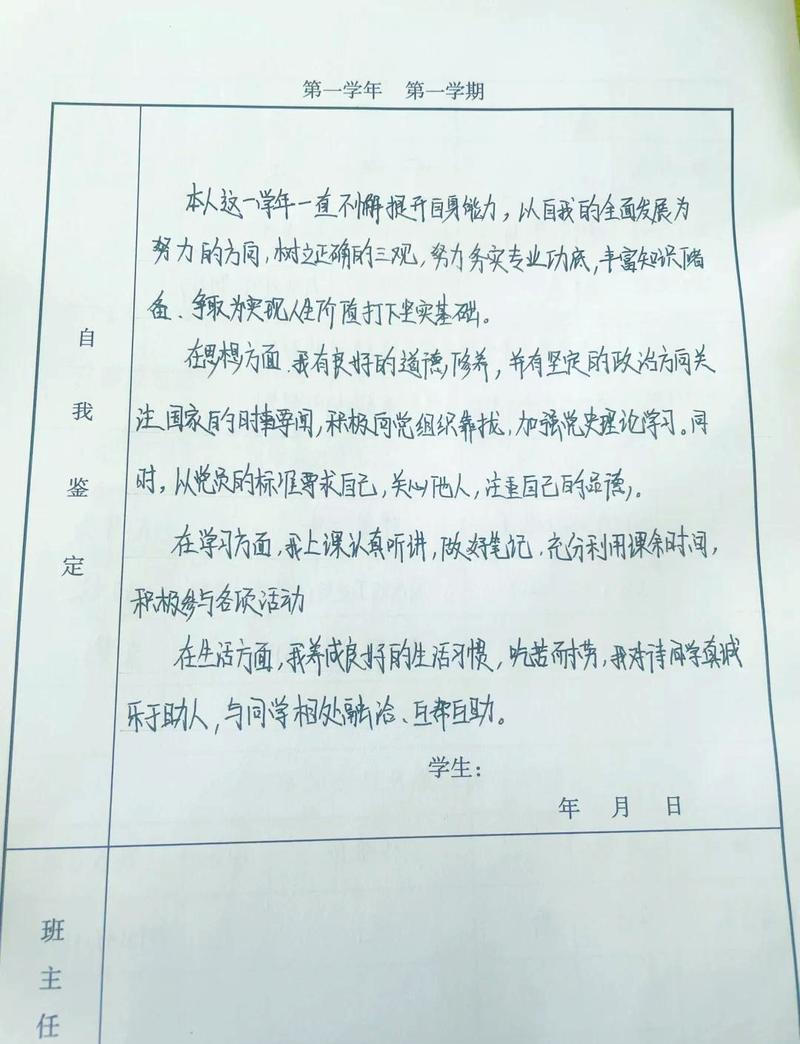 第一学年 第一学期
自我鉴定
本人这一学年一直不懈提升自身能力，以自我的全面发展为
努力的方向，树立正确的三观，努力务实专业功底，丰富知识储
备、争取为实现人生阶值打下坚实基础。
在思想方面、我有良好的道德修养，并有坚定的政治方向关
注国家的时事要闻，积极向党组织靠拢，加强党史理论学习。同
时，以党员的标准要求自己，关心他人，注重自己的品德。
在学习方面，我上课认真听讲，做好笔记，充分利用课余时间，
积极参与各项活动
在生活方面，我养成良好的生活习惯，吃苦而耐劳，我对待同学真诚
乐于助人，与同学相处融洽、互帮互助。
学生：
年 月 日
班主任